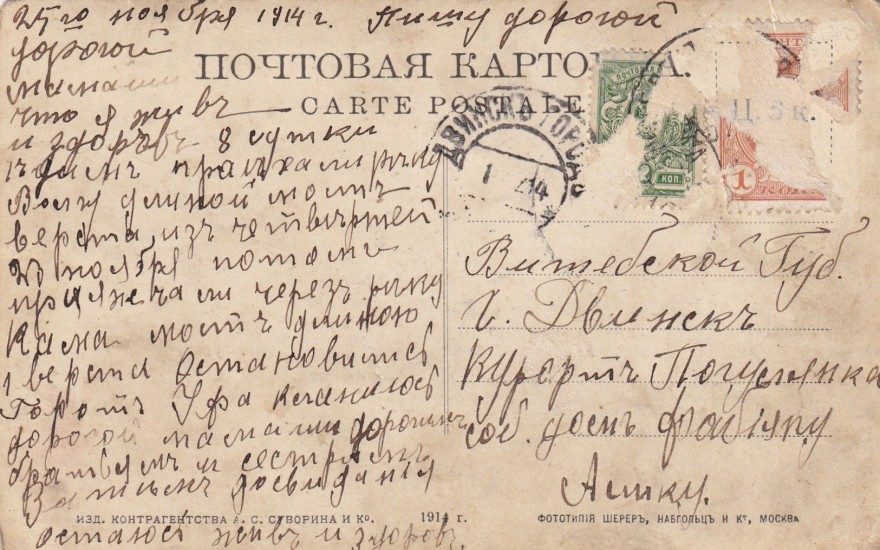 25го ноября 1914 г. Пишу дорогой
дорогой
мамаши
что я живъ
и здоровъ 8 сутки
едимъ праехали речку
Волгу длиной мостъ
верста изъ четвертей
23 ноября потомъ
через реку
Кама мостъ длиною
1 верста Остановились
Горотъ Уфа кланиюсь
дорогой мамаши дорогимъ
братьямъ и сестрамъ
Затемъ досвидания
остаюсь живъ и здоровъ.
ПОЧТОВАЯ КАРТОЧКА.
CARTE POSTALE
ДВИНСКЪ ГОРОД
1 14
2 КОП.
Ц. 5 к.
1 КОП
Витебской Губ.
г. Двинскъ
Курортъ Погулянка
соб. домъ Фабіяну
ИЗД. КОНТРАГЕНТСТВА А. С. СУВОРИНА И Ко. 1914 г.
ФОТОТИПІЯ ШЕРЕРЪ, НАБГОЛЬЦЪ И Ко, МОСКВА